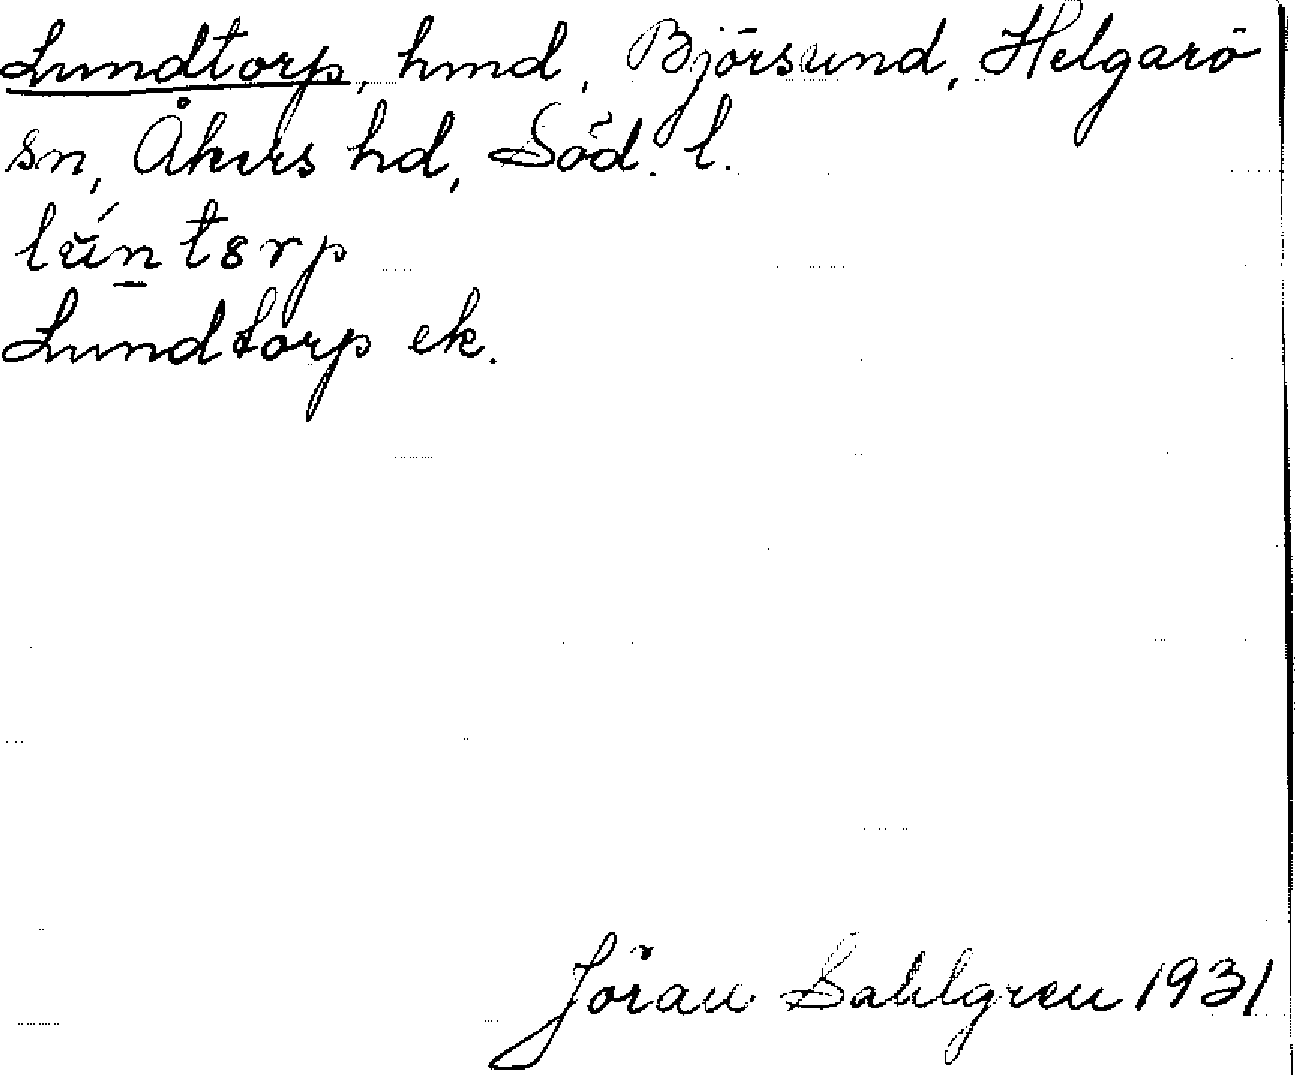 Lundtorp, hmd, Björsund, Helgarö
sn, Åkers hd, Söd. l.
Lundtorp ek.
Jöran Sahlgren 1931